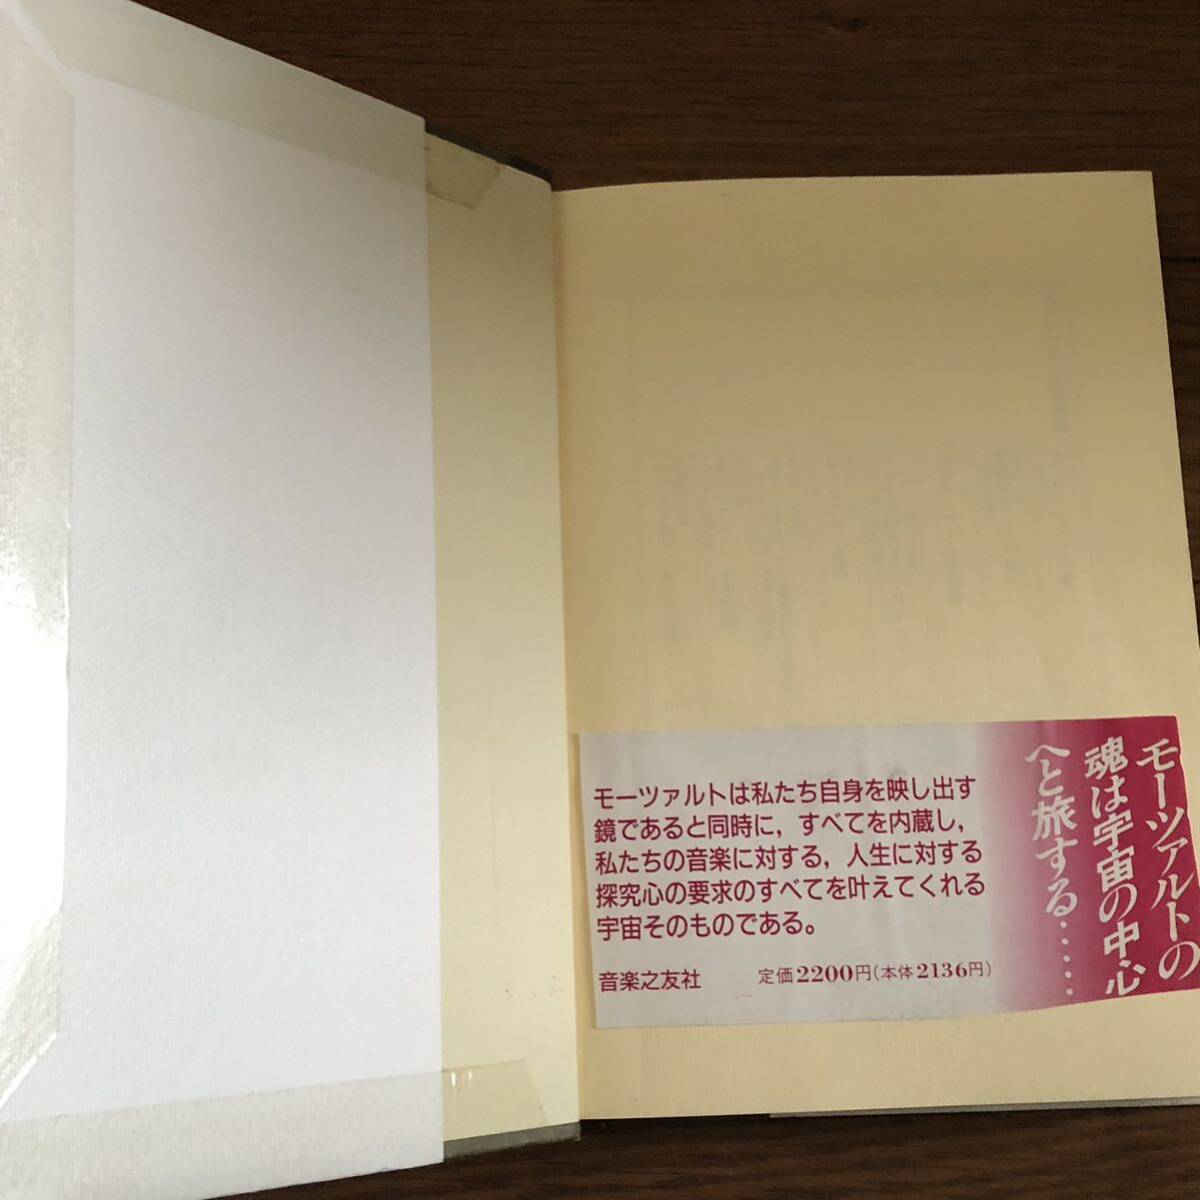 モーツァルトの
魂は宇宙の中心
へと旅する……
モーツァルトは私たち自身を映し出す
鏡であると同時に，すべてを内蔵し，
私たちの音楽に対する，人生に対する
探究心の要求のすべてを叶えてくれる
宇宙そのものである。
音楽之友社
定価2200円(本体2136円)